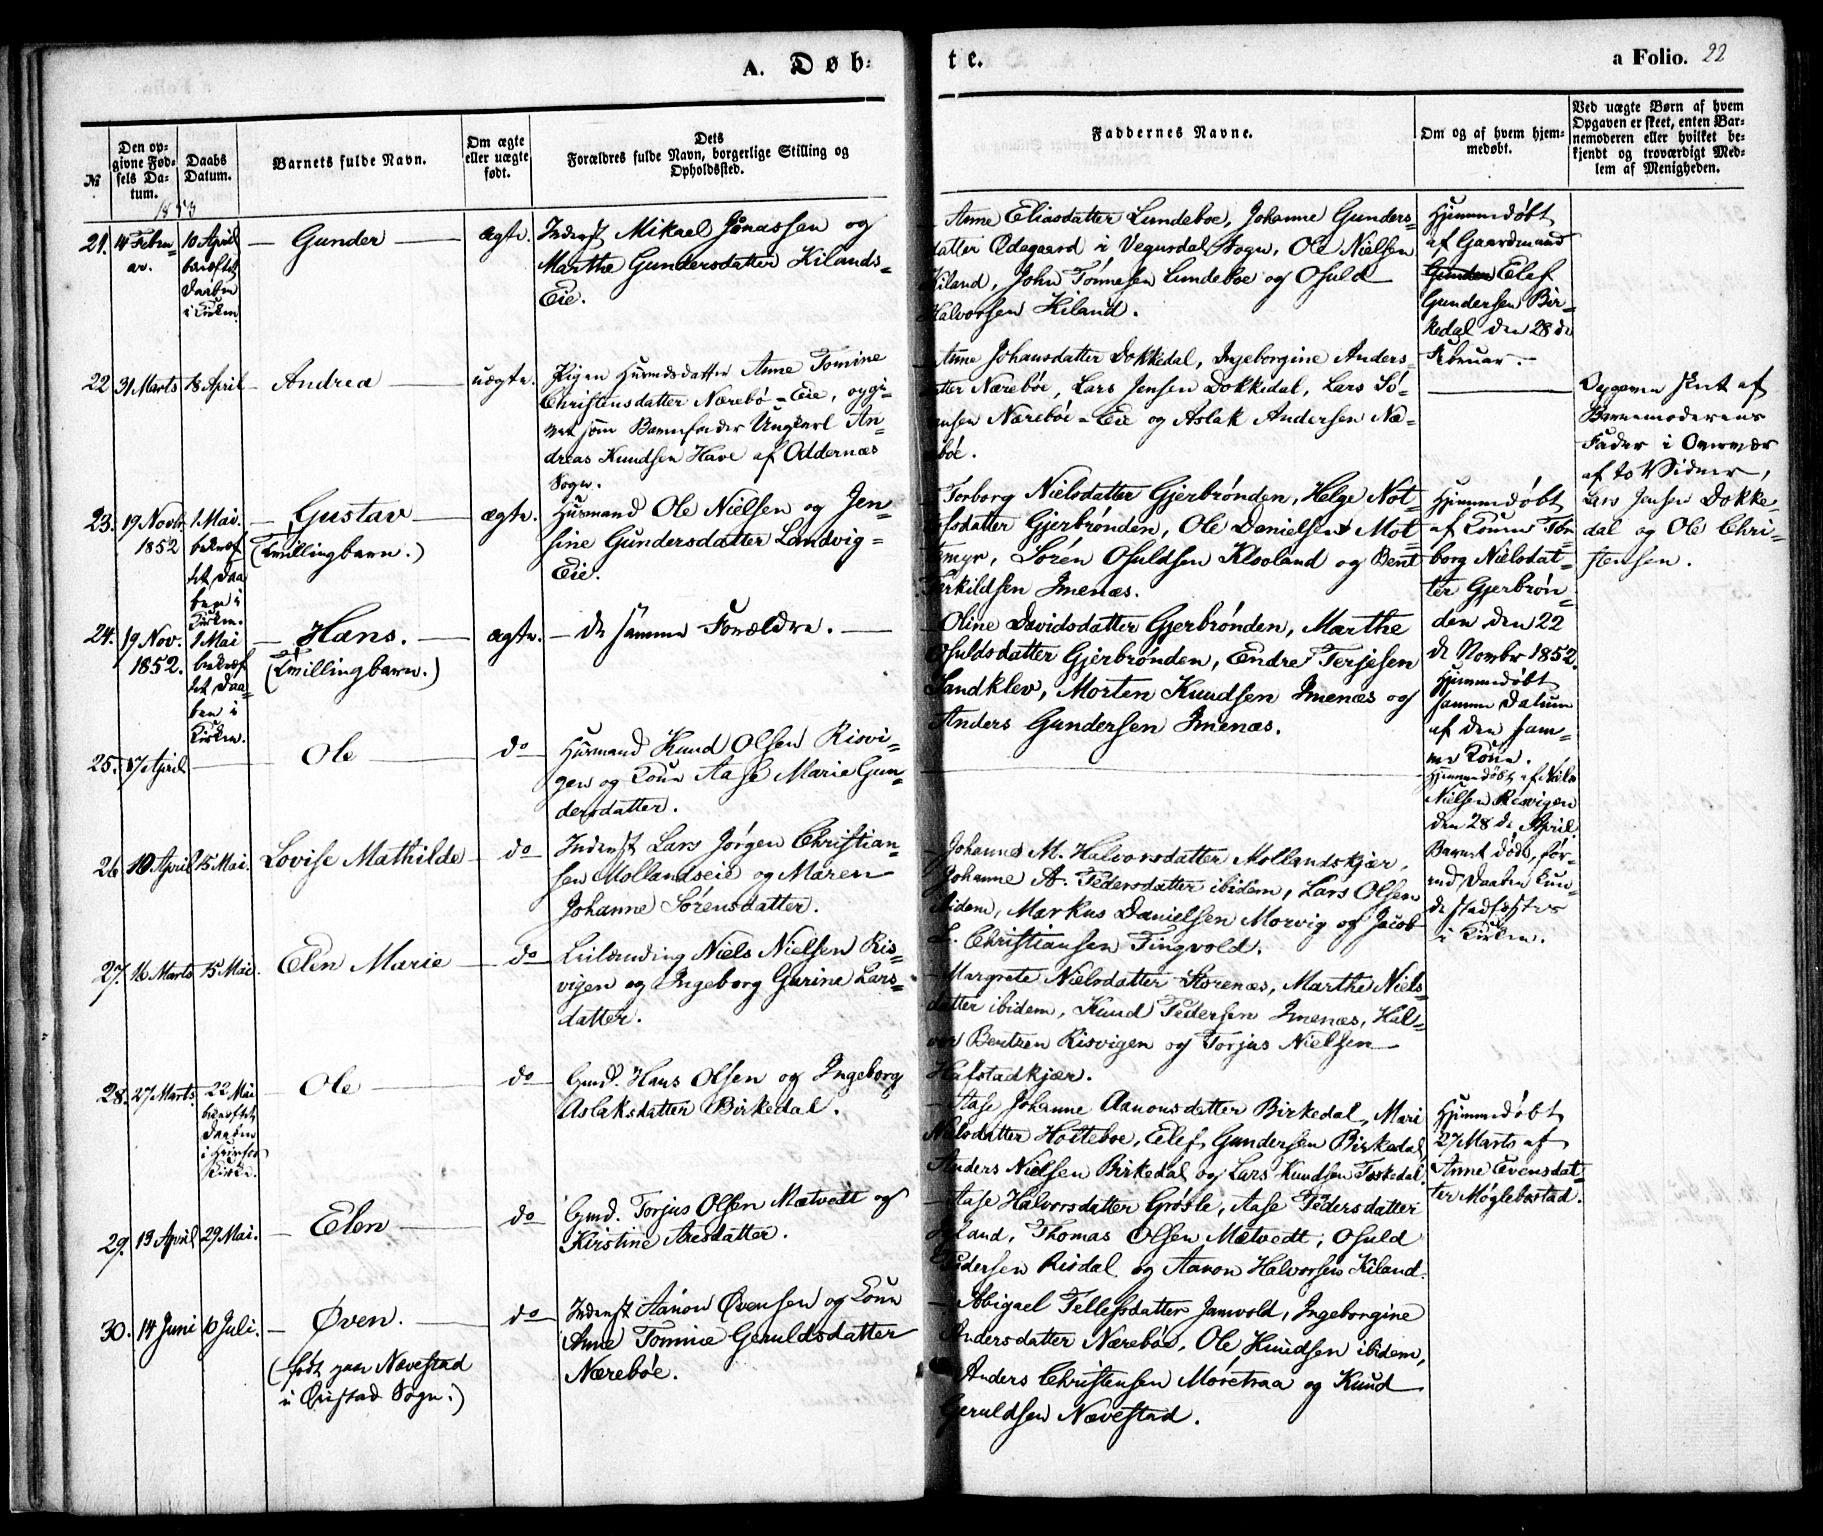 A. Døb-
te.
a Folio. 22
№
Den op-
givne Fød-
sels Da-
tum.
Daabs
Datum.
Barnets fulde Navn.
Om ægte
eller uægte
født.
Dets
Forældres fulde Navn, borgerlige Stilling og
Opholdssted.
Faddernes Navne.
Om og af hvem hjem-
medøbt.
Ved uægte Børn af hvem
Opgaven er skeet, enten Bar-
nemoderen eller hvilket be-
kjendt og troværdigt Med-
lem af Menigheden.
1853
21.
14 Febru-
ar.
10 April
bekræftet
Daaben
i Kirken
Gunder
ægte.
Inderst Mikael Jonassen og
Marthe Gundersdatter Kilands-
Eie.
Anne Eliasdatter Lundeboe, Johanne Gunders-
datter Ødegaard i Vegusdal Sogn, Ole Nielsen
Kiland, John Tønnesen Lundeboe og Osuld
Halvorsen Kiland.
Hjemmedøbt
af Gaardmand
Gunder Elef
Gundersen Bir-
kedal den 28de
Februar.
22
31 Marts
18 April
Andrea
uægte.
Pigen Huusmdsdatter Anne Tomine
Christensdatter Nærebö-Eie, opgi-
vet som Barnefader Ungkarl An-
dreas Knudsen Have af Oddernæs
Sogn.
Anne Johansdatter Dokkedal, Ingeborgine Anders-
datter Næreböe, Lars Jensen Dokkedal, Lars Sö-
rensen Næreböe-Eie og Aslak Andersen Næ-
reböe.
Opgaven skeet af
Barnemoderens
Fader i Overvær
af to Vidner,
Lars Jensen Dokke-
dal og Ole Chri-
stensen.
23.
19 Novb.
1852
1. Mai.
bekræf-
tet Daa
ben i
Kirken.
Gustav
(Tvillingbarn.)
ægte.
Huusmand Ole Nielsen og Jen-
sine Gundersdatter Landvig-
Eie.
Torborg Nielsdatter Gjerbrönden, Helge Not-
tofsdatter Gjerbrönden, Ole Danielsen Mot-
temyr, Sören Osuldsen Klooland og Bent
Terkildsen Imenæs.
Hjemmedøbt
af Konen Tor-
borg Nielsdat-
ter Gjerbrön-
den den 22
de Novbr 1852.
24.
19 Nov.
1852.
1 Mai
bekræf
tet Daa-
ben i
Kirken.
Hans.
(Tvillingbarn.)
ægte.
de samme Forældre.
Oline Davidsdatter Gjerbrönden, Marthe
Osuldsdatter Gjerbrönden, Endre Terjesen
Sandklev, Morten Knudsen Imenæs og
Anders Gundersen Imenæs.
Hjemmedøbt
samme Datum
af den sam-
me Kone.
25.
17 April
Ole
do
Huusmand Knud Olsen Risvi-
gen og Kone Aase Marie Gun-
dersdatter.
Hjemmedøbt af Niels
Nielsen Risvigen
den 28de April.
Barnet døde, før-
end Daaben kun-
de stadfæstes
i Kirken.
26
10 April
15 Mai.
Lovise Mathilde
do
Inderst Lars Jørgen Christian-
sen Mollandseie og Maren
Johanne Sørensdatter.
Johanne M. Halvorsdatter Mollandskjær,
Johanne A. Pedersdatter ibidem, Lars Olsen
ibidem, Markus Danielsen Morvig og Jacob
L. Christiansen Tingvold.
27.
16 Marts
15 Mai.
Elen Marie
do
Leilænding Niels Nielsen Ris-
vigen og Ingeborg Gurine Lars-
datter.
Margrete Nielsdatter Storenæs, Marthe Niels-
datter ibidem, Knud Pedersen Imenæs, Hal-
vor Bentzen Risvigen og Torjus Nielsen
Hafstadkjær.
28.
27 Marts.
22 Mai
bekræftet
Daaben
i
Kirke.
Ole
do
Gmd. Hans Olsen og Ingeborg
Aslaksdatter Birkedal.
Aase Johanne Aanonsdatter Birkedal, Mari
Nielsdatter Holteboe, Elef Gundersen Birkedal,
Anders Nielsen Birkedal og Lars Knudsen Toskedal.
Hjemmedøbt
27 Marts af
Anne Evensdat-
ter Møglebostad.
29.
13 April
29 Mai.
Elen
do
Gmd. Torjus Olsen Mætvedt og
Kirstine Aresdatter.
Aase Halvorsdatter Grøsle, Aase Pedersdatter
Thomas Olsen Mætvedt, Osuld
Pedersen Risdal og Aanon Halvorsen Kiland.
30.
14 Juni
10 Juli.
Øven.
(født paa Nævestad
i Øiestad Sogn.)
do
Inderst Aanon Øvensen og Kone
Anne Tomine Geruldsdatter
Næreböe.
Abigael Tellefsdatter Jamvold, Ingeborgine
Andersdatter Næreböe, Ole Knudsen ibidem,
Anders Christensen Møretraa og Knud
Geruldsen Nævestad.